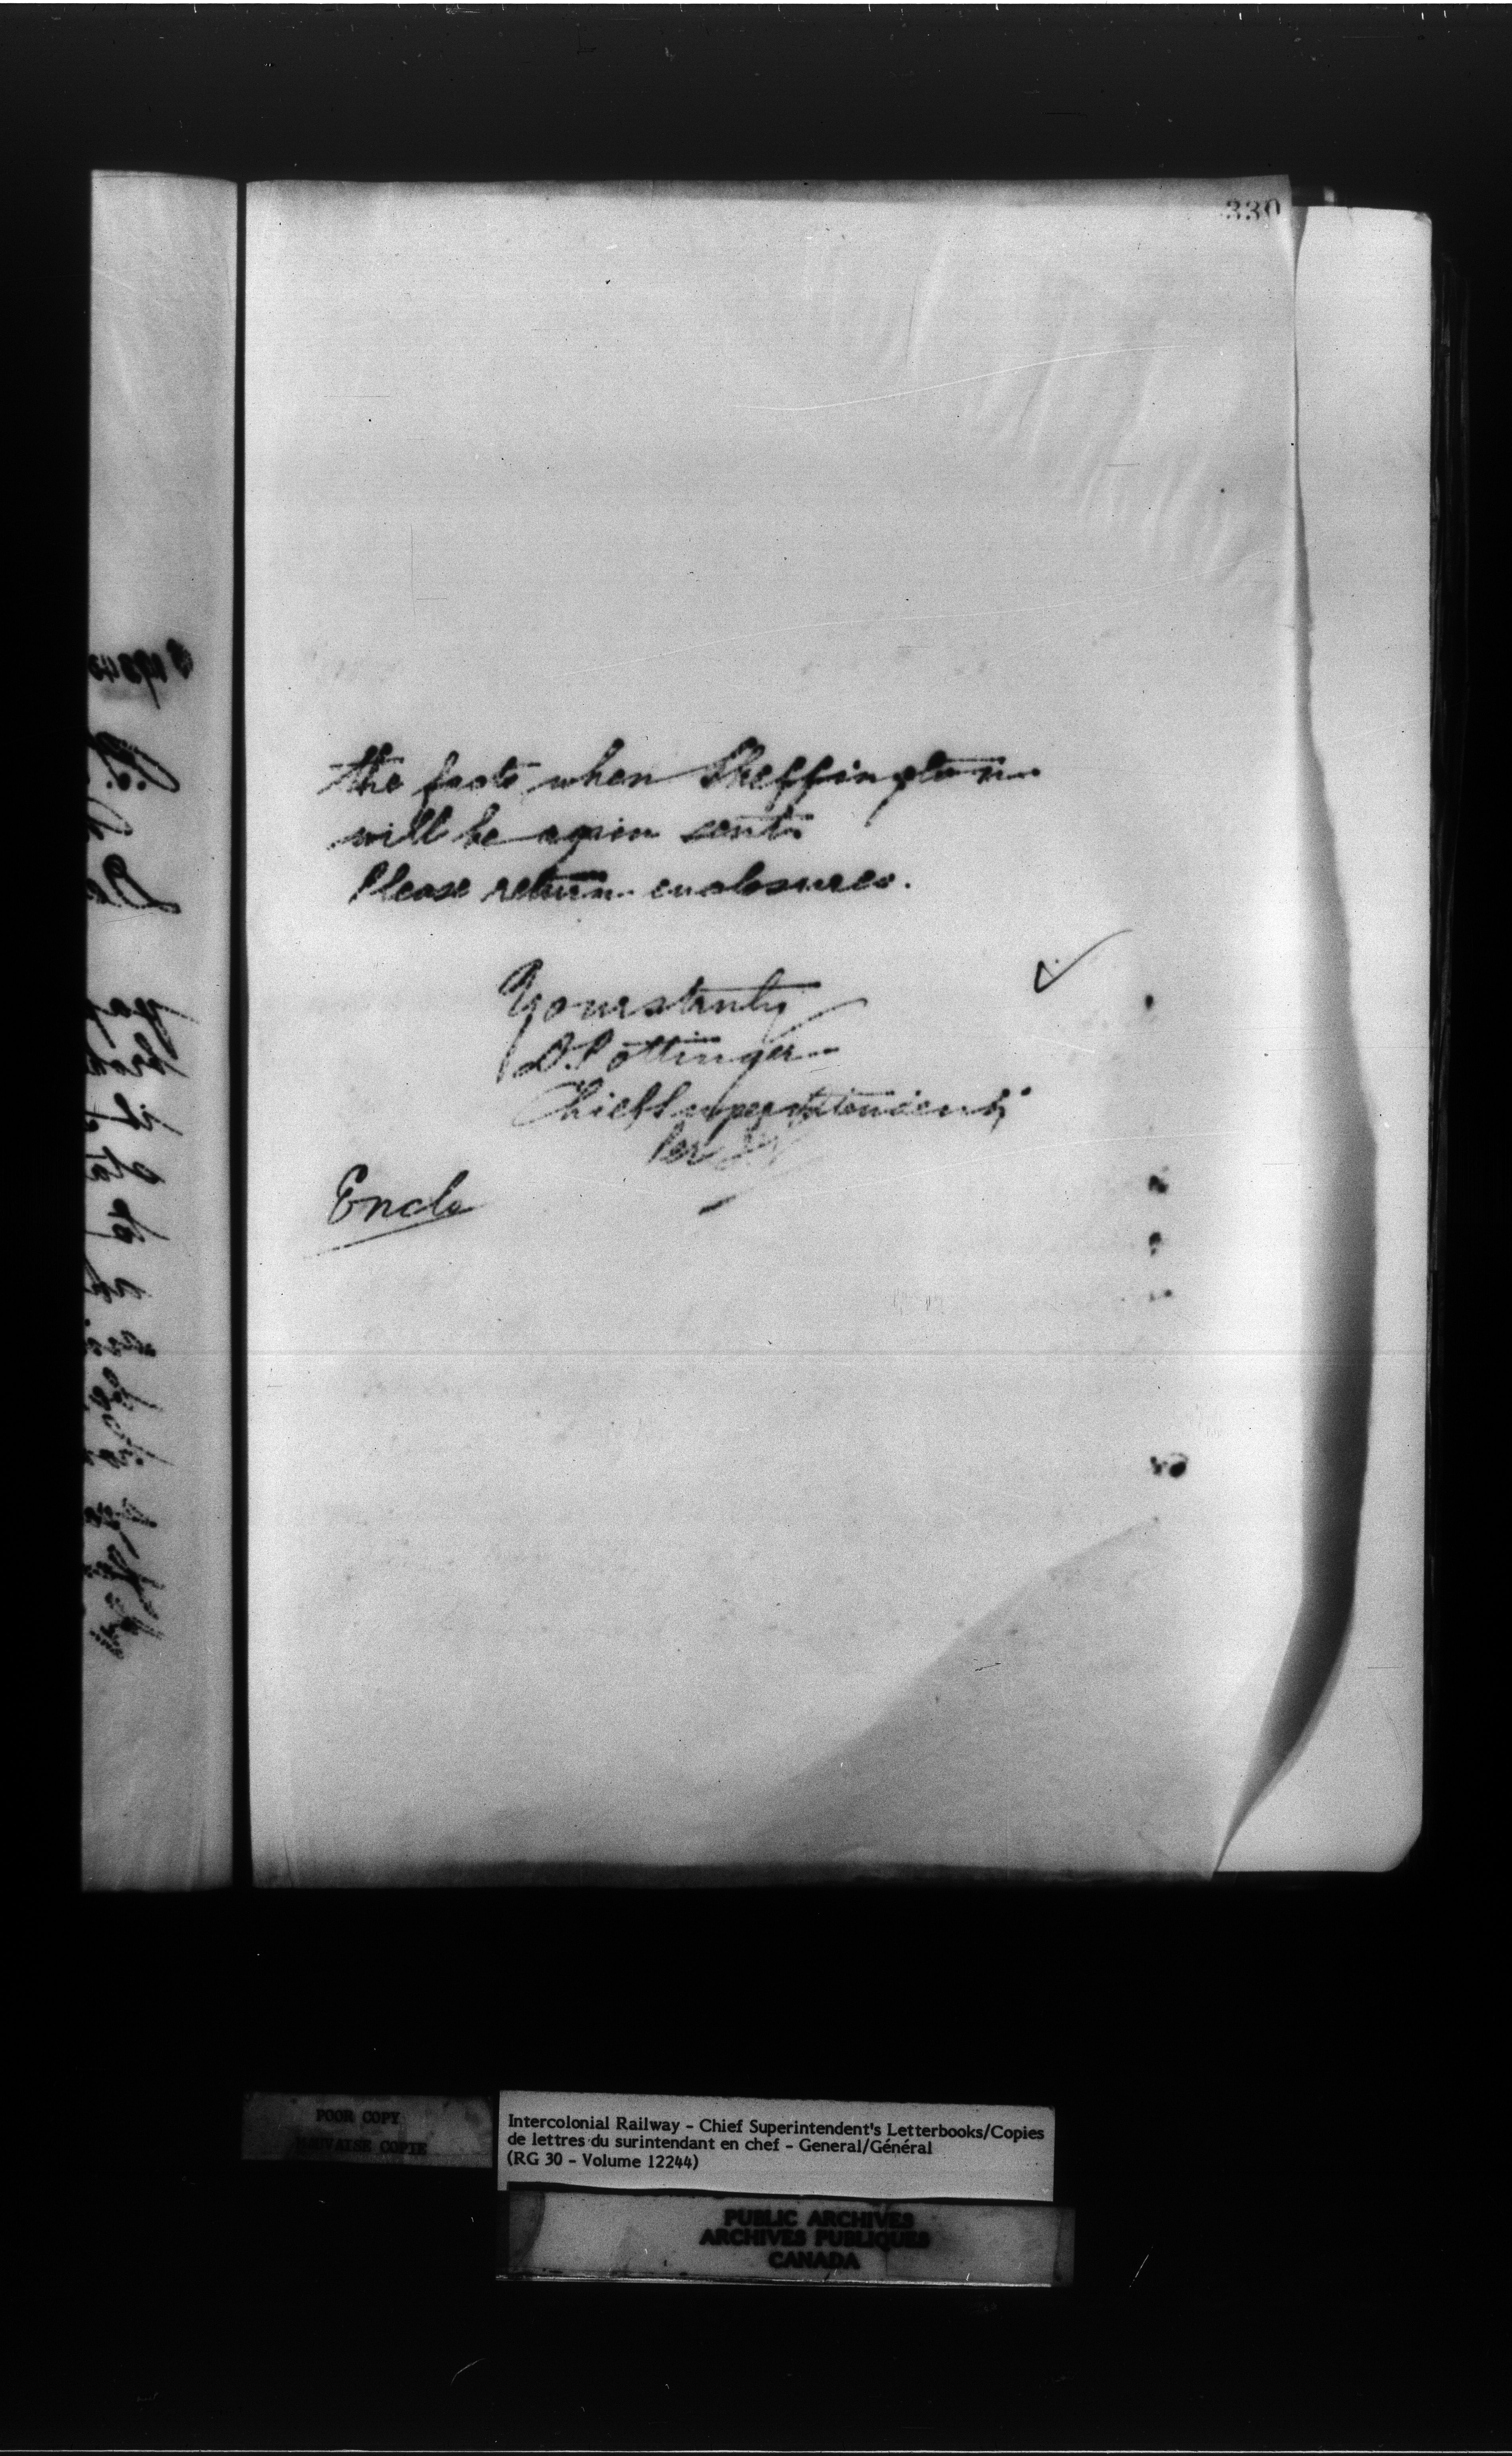 330
the facts when Skeffington
will be again sent.
Please return enclosures.
Yours truly
D. Pottinger
Chief Superintendent
Per
Encls
POOR COPY
MAUVAISE COPIE
Intercolonial Railway - Chief Superintendent's Letterbooks/Copies
de lettres du surintendant en chef - General/Général
(RG 30 - Volume 12244)
PUBLIC ARCHIVES
ARCHIVES PUBLIQUES
CANADA